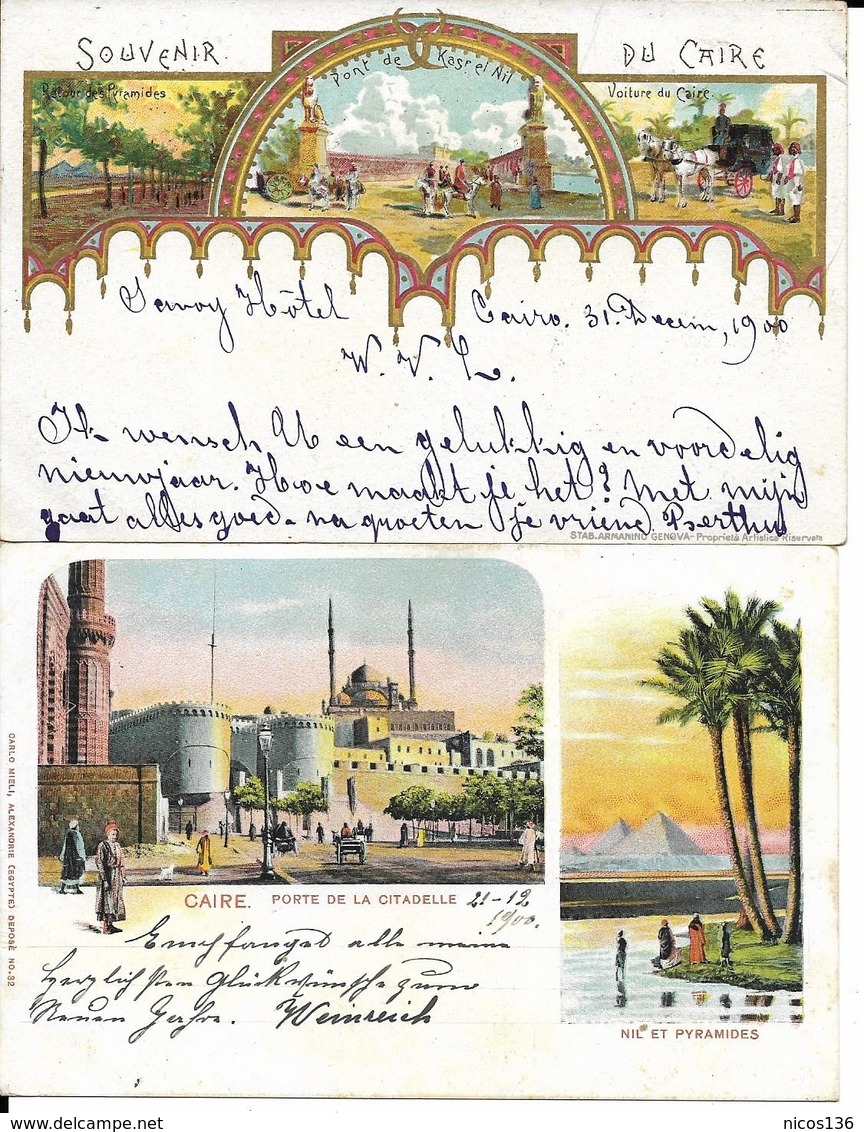 SOUVENIR DU CAIRE
Retour des Pyramides
Pont de Kasr el Nil
Voiture du Caire
Savoy Hôtel Cairo. 31. Decem, 1900
W. V. L.
Ik wensch U een gelukkig en voordelig
nieuwjaar. Hoe maakt je het? Met mijn
gaat alles goed - na groeten je vriend Berthus
STAB. ARMANINO GENOVA - Proprietà Artistica Riservata
CARLO MIELI, ALEXANDRIE (EGYPTE) DEPOSÉ NO. 32
CAIRE. PORTE DE LA CITADELLE 21-12
1900.
Empfanget alle meine
Herzlichsten Glückwünsche zum
Neuen Jahre. Weinreich
NIL ET PYRAMIDES
nicos136